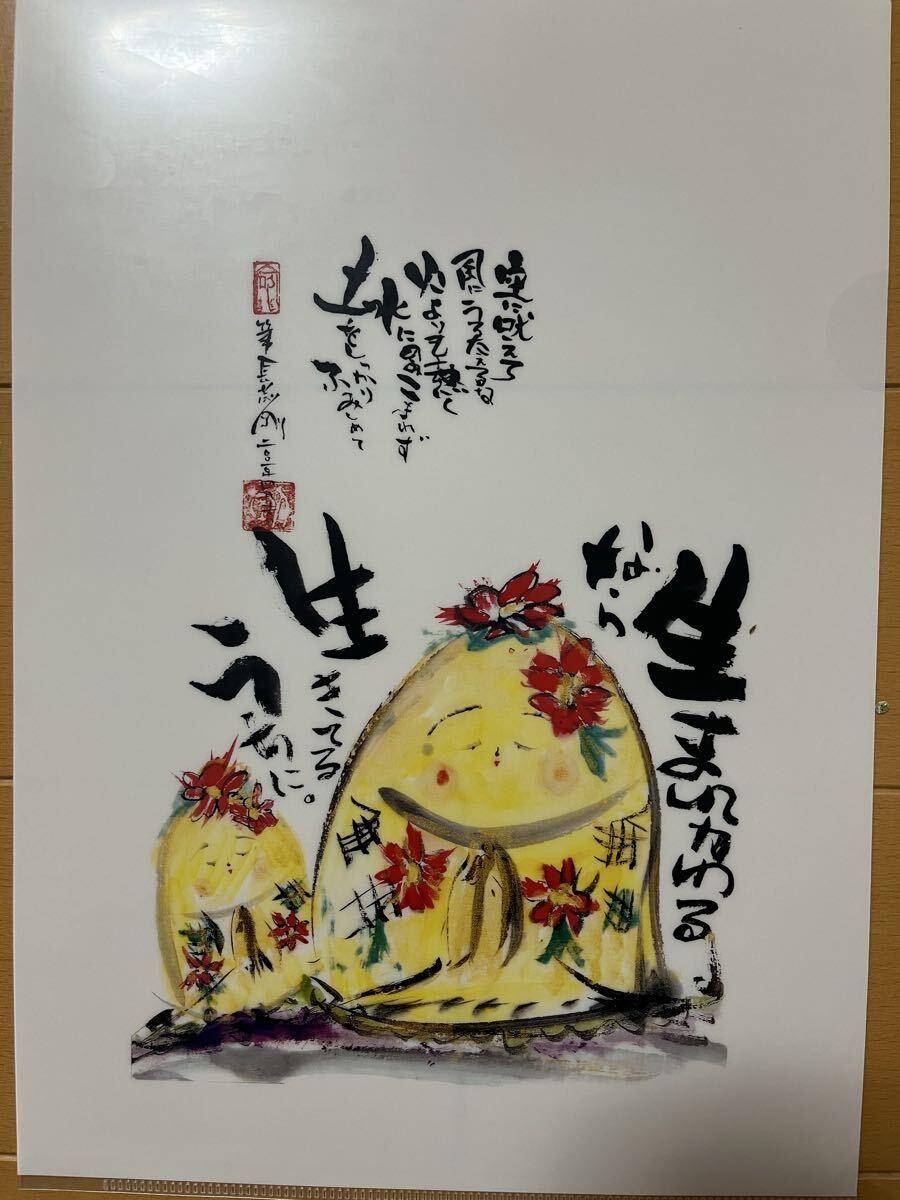 生まれかわる
なら
生きてる
うちに。
空に吠えて
風にうろたえるな
火よりも熱く
水にのみこまれず
土をしっかり
ふみしめて